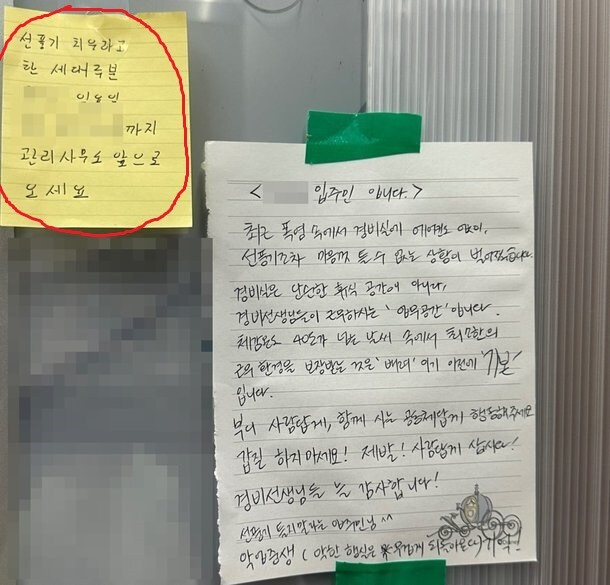 선풍기 치우라고
한 세대주분
까지
관리사무소 앞으로
오세요
< 입주인 입니다. >
최근 폭염 속에서 경비실에 에어컨도 없이,
선풍기조차 마음껏 틀 수 없는 상황이 벌어졌습니다.
경비실은 단순한 휴식 공간이 아니라,
경비선생님들이 근무하시는 '업무공간' 입니다.
체감온도 40도가 넘는 날씨 속에서 최소한의
근무환경을 보장받는 것은 '배려' 이기 이전에 '기본'
입니다.
부디 사람답게, 함께 사는 공동체답게 행동해주세요
갑질 하지마세요! 제발! 사람답게 삽시다!
경비선생님들 늘 감사합니다!
선풍기 틀지말라는 입주민님 ^^
악인악생 ( 악한 행실은 무겁게 되돌아온다) 기억!